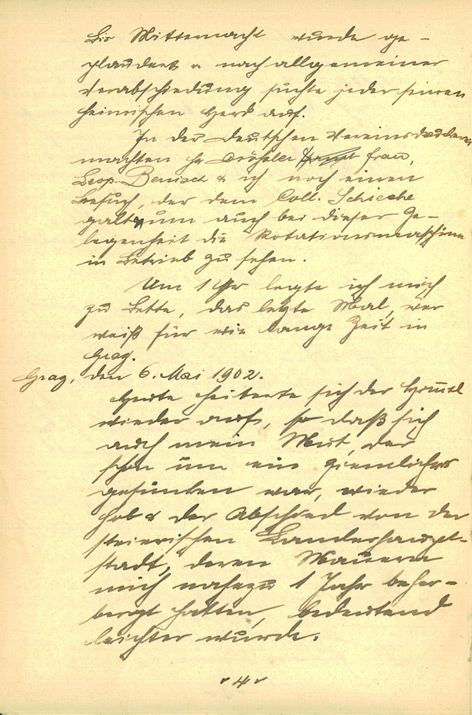 Bis Mitternacht wurde ge-
plaudert u nach allgemeiner
Verabschiedung suchte jeder seinen
heimischen Herd auf.
In der deutschen Vereinsdruckerei
machten H Frau,
Leop. Benisch & ich noch einen
Besuch, der dem Coll. Schieche
galt, um auch bei dieser Ge-
legenheit die Rotationsmaschine
in Betrieb zu sehen.
Um 1 Uhr legte ich mich
zu Bette, das letzte Mal, wer
weiß für wie lange Zeit in
Graz.
Graz, den 6. Mai 1902.
Heute heiterte sich der Himmel
wieder auf, so daß sich
auch mein Mut, der
schon um ein ziemliches
gesunken war, wieder
hob & der Abschied von der
steierischen Landeshaupt-
stadt, deren Mauern
mich nahezu 1 Jahr beher-
bergt hatten, bedeutend
leichter wurde.
4